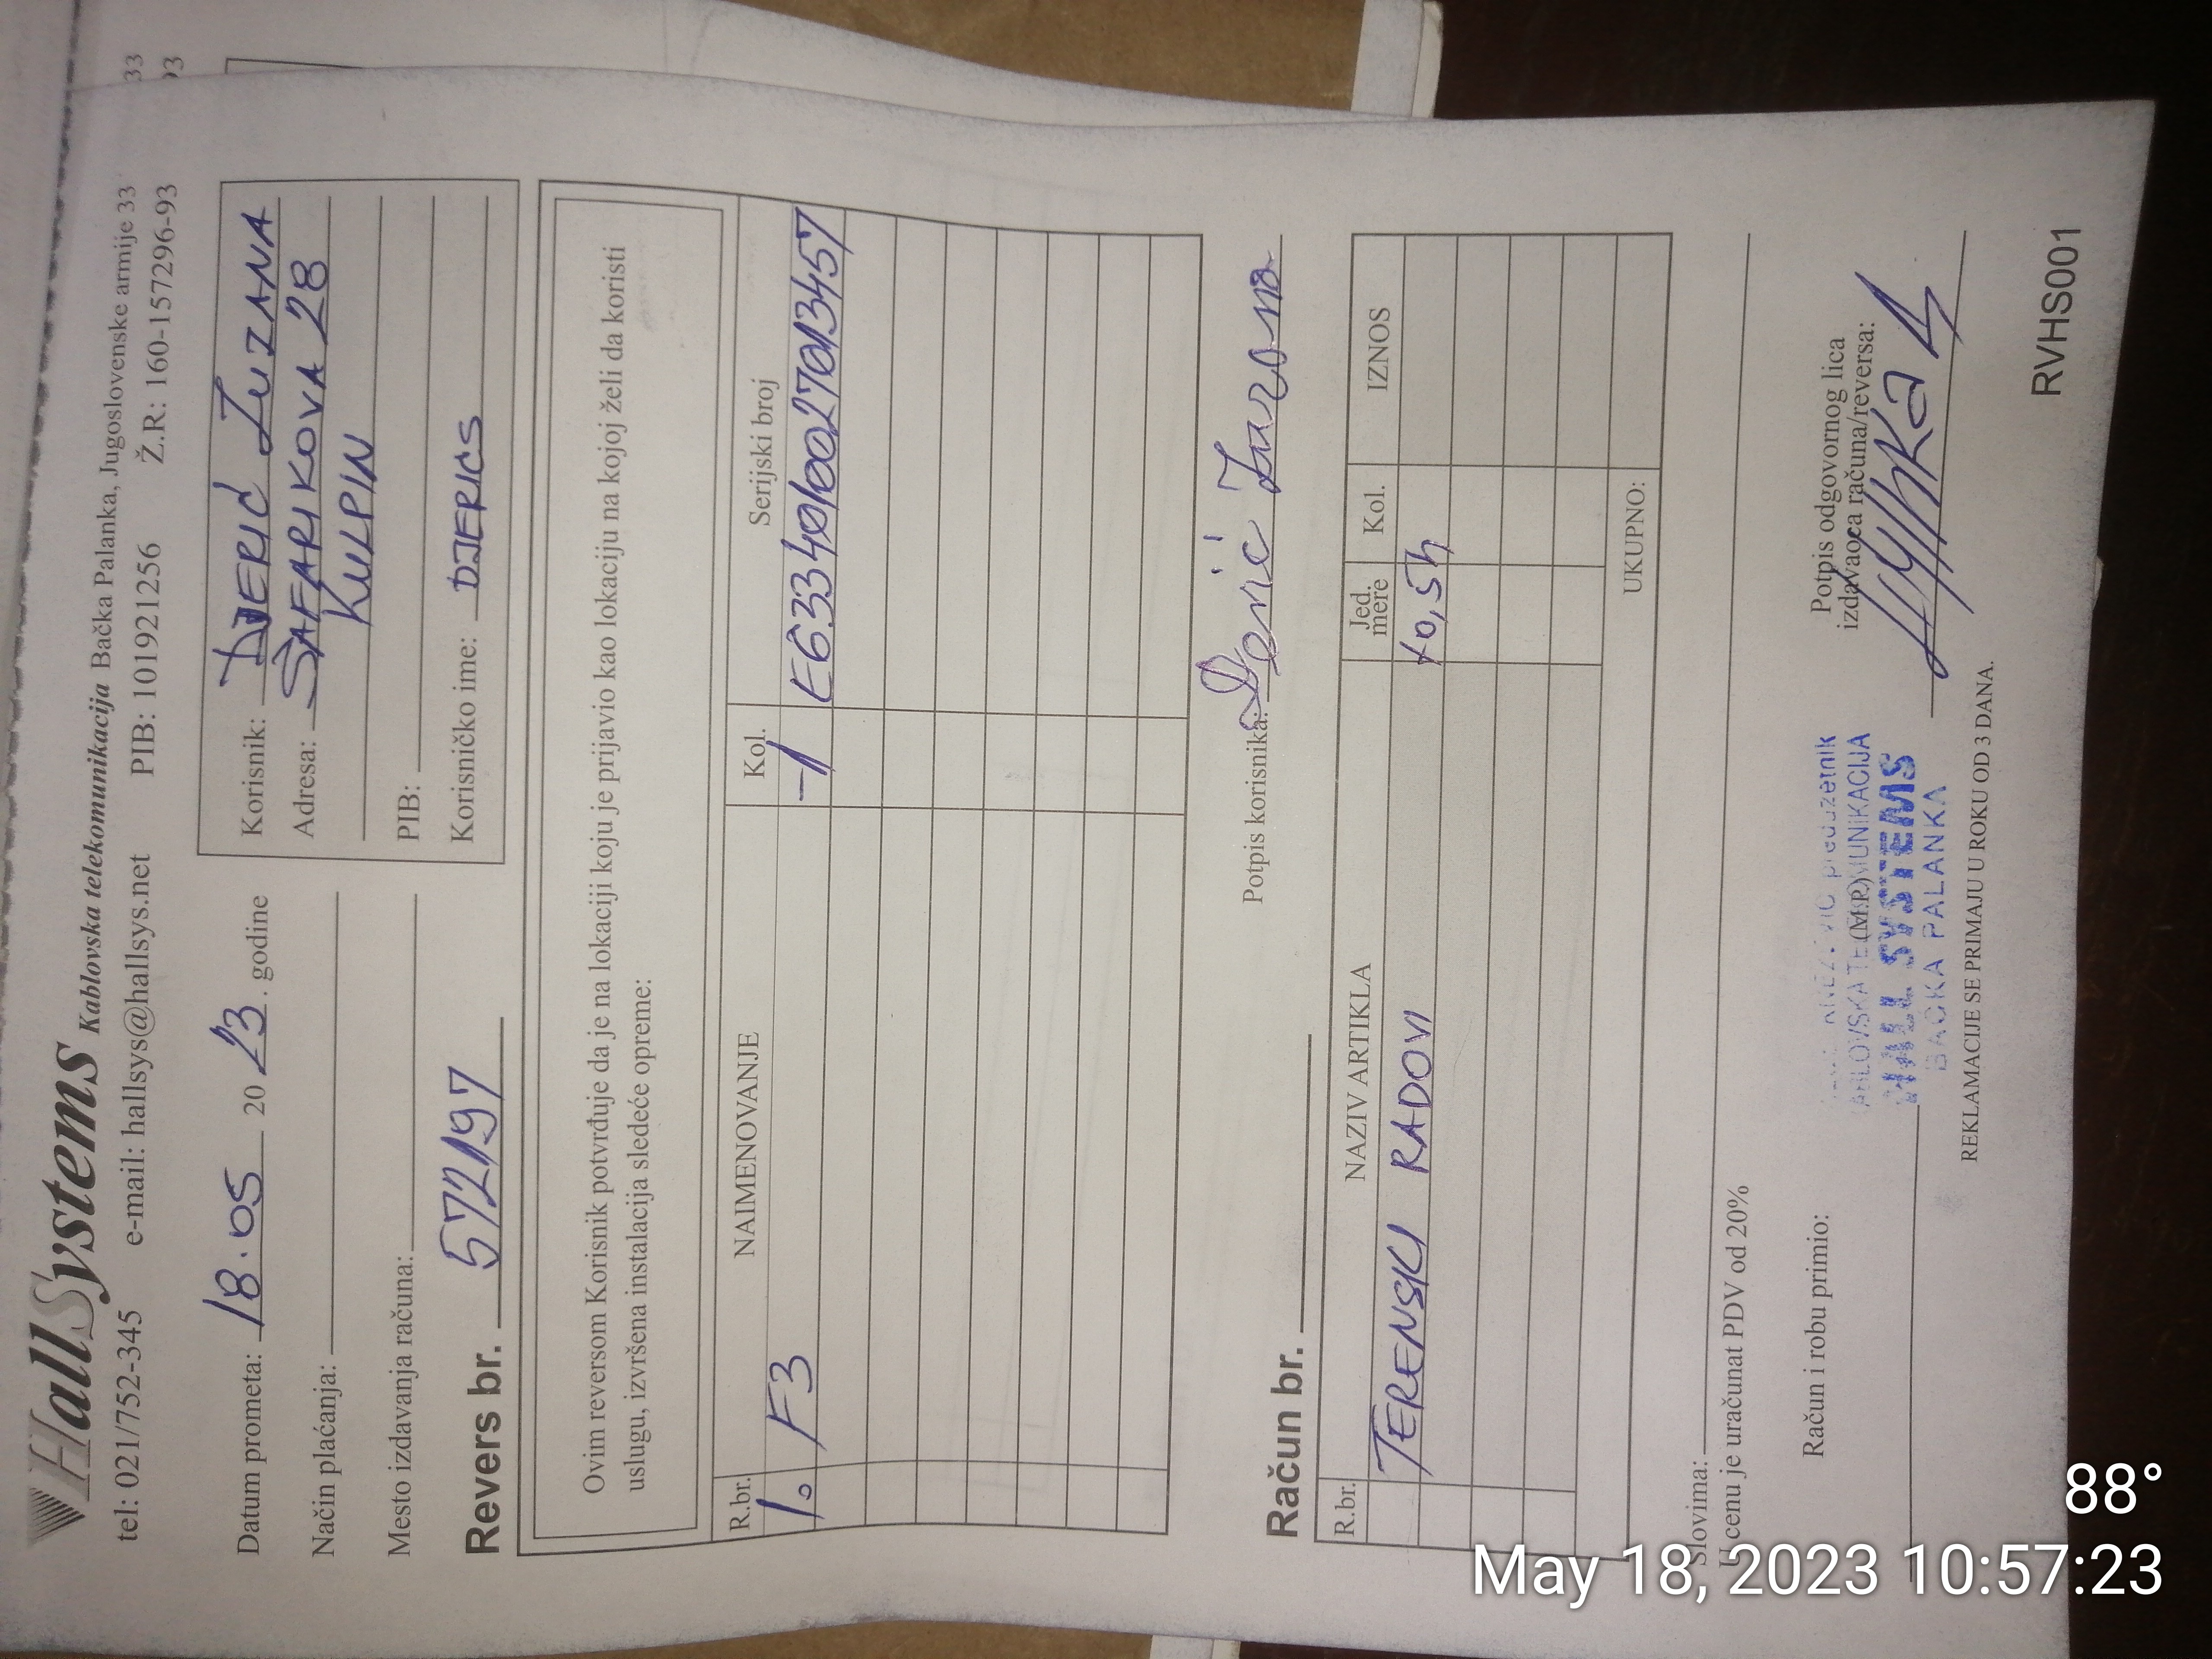 HallSystems Kablovska telekomunikacija Bačka Palanka, Jugoslovenske armije 33
tel: 021/752-345 e-mail: hallsys@hallsys.net PIB: 101921256 Ž.R: 160-157296-93
33
93
Datum prometa: 18.05 20 23. godine
Način plaćanja:
Mesto izdavanja računa:
Korisnik: DJERIĆ ZUZANA
Adresa: ŠAFARIKOVA 28
KULPIN
PIB:
Korisničko ime: DJERICS
Revers br. 572197
Ovim reversom Korisnik potvrđuje da je na lokaciji koju je prijavio kao lokaciju na kojoj želi da koristi
uslugu, izvršena instalacija sledeće opreme:
R.br. NAIMENOVANJE Kol. Serijski broj
1. F3 1 E6334010027013457
Potpis korisnika: Đerić Zuzana
Račun br.
R.br. NAZIV ARTIKLA Jed. mere Kol. IZNOS
TERENSKI RADOVI +0,5h
UKUPNO:
Slovima:
U cenu je uračunat PDV od 20%
Račun i robu primio:
(M.P.)
preduzetnik
HALL SYSTEMS
BAČKA PALANKA
Potpis odgovornog lica
izdavaoca računa/reversa:
REKLAMACIJE SE PRIMAJU U ROKU OD 3 DANA.
RVHS001
88°
May 18, 2023 10:57:23